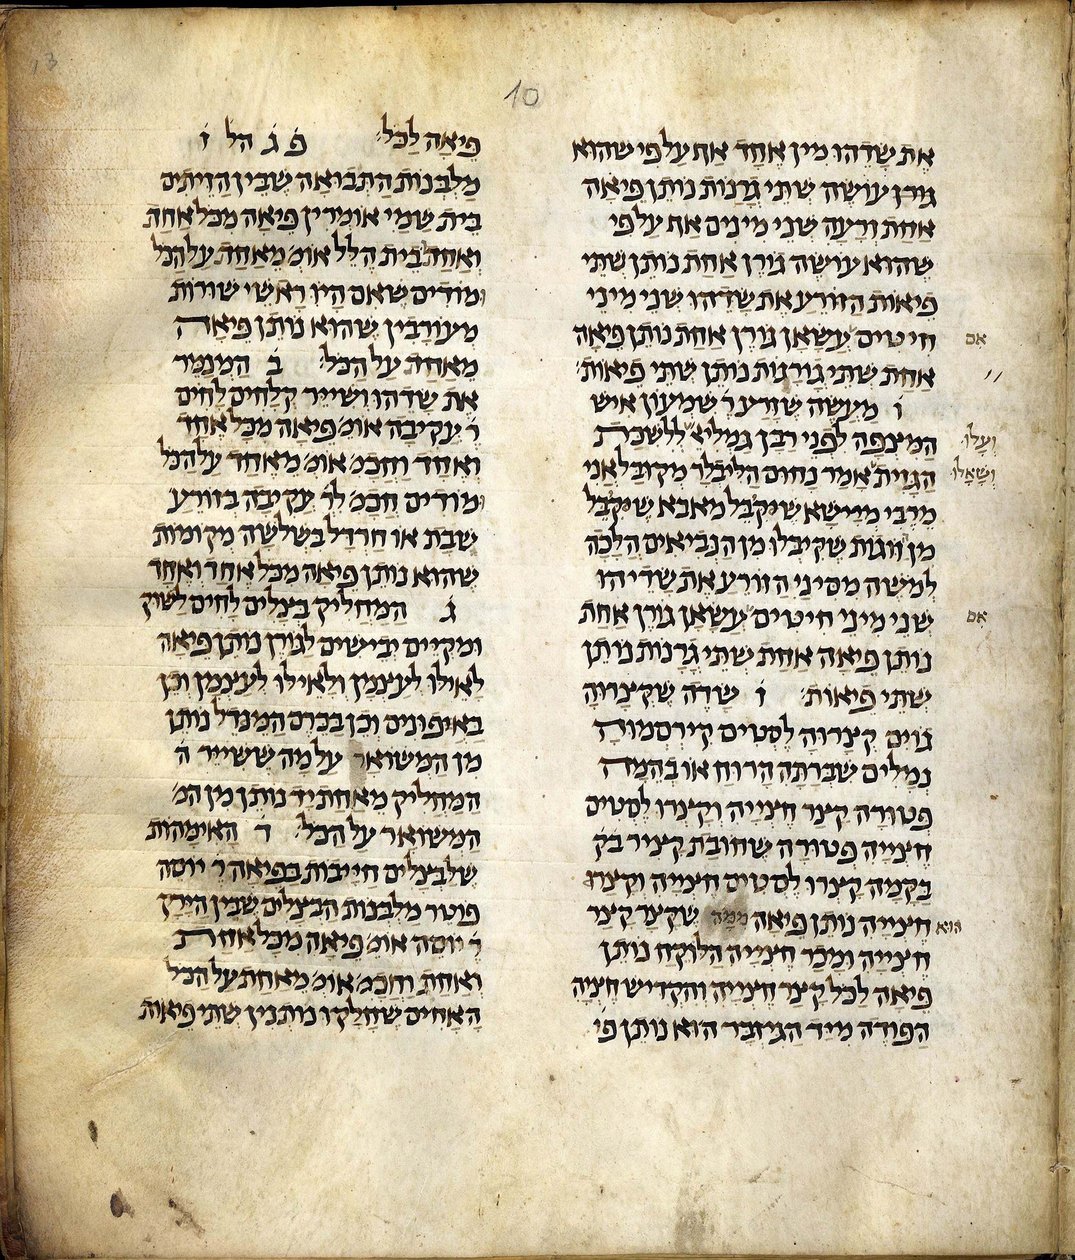 10
13
את שדהו מין אחד אף על פי שהוא
גורן עושה שתי גרנות נותן פיאה
אחת זרעה שני מינים אף על פי
שהוא עושה גורן אחת נותן שתי
פיאות הזורע את שדהו שני מיני
חיטים עשאן גורן אחת נותן פיאה
אם
אחת שתי גורנות נותן שתי פיאות׃
ו מעשה שזרע ר׳ שמעון איש
המצפה לפני רבן גמליא׳ ללשכת
ועלו
הגזית אמר נחום הליבלר מקובל אני
ושאלו
מרבי מיישא שקיבל מאבא שקיבל
מן זוגות שקיבלו מן הנביאים הלכה
למשה מסיני הזורע את שדיהו
שני מיני חיטים עשאן גורן אחת
אם
נותן פיאה אחת שתי גרנות נותן
שתי פיאות׃ ז שדה שקצרוה
גוים קצרוה לסטים קירסמוה
נמלים שברתה הרוח או בהמה
פטורה קצר חצייה וקצרו לסטים
חצייה פטורה שחובת קציר בק
בקמה קצרו לסטים חצייה וקצר
חצייה נותן פיאה ממה שקצר קצר
הוא
חצייה ומכר חצייה הלוקח נותן
פיאה לכל קצר חצייה והקדיש חציה
הפודה מיד הגיזבר הוא נותן פי
פיאה לכל׃ פ ג הל ז
מלבנות התבואה שבין הזיתים
בית שמי אומרין פיאה מכל אחת
ואחת בית הלל אומ׳ מאחת על הכל
ומודים שאם היו ראשי שורות
מעורבין שהוא נותן פיאה
מאחת על הכל׃ ב המנמיר
את שדהו ושייר קלחים לחים
ר׳ עקיבה אומ׳ פיאה מכל אחד
ואחד וחכמ׳ אומ׳ מאחד על הכל
ומודים חכמ׳ לר׳ עקיבה בזורע
שבת או חרדל בשלשה מקומות
שהוא נותן פיאה מכל אחד ואחד
ג המחליק בצלים לחים לשוק
ומקיים יבישים לגורן נותן פיאה
לאולו לעצמן ולאילו לעצמן וכן
באיפונים וכן בכרם המנדל נותן
מן המשואר על מה ששייר ה
המחליק מאחת יד נותן מן המ׳
המשואר על הכל׃ ד האימהות
שלבצלים חייבות בפיאה ר׳ יוסה
פוטר מלבנות הבצלים שבין הירק
ר׳ יוסה אומ׳ פיאה מכל אחת
ואחת וחכמ׳ אומ׳ מאחת על הכל
האחים שחלקו נותנין שתי פיאות